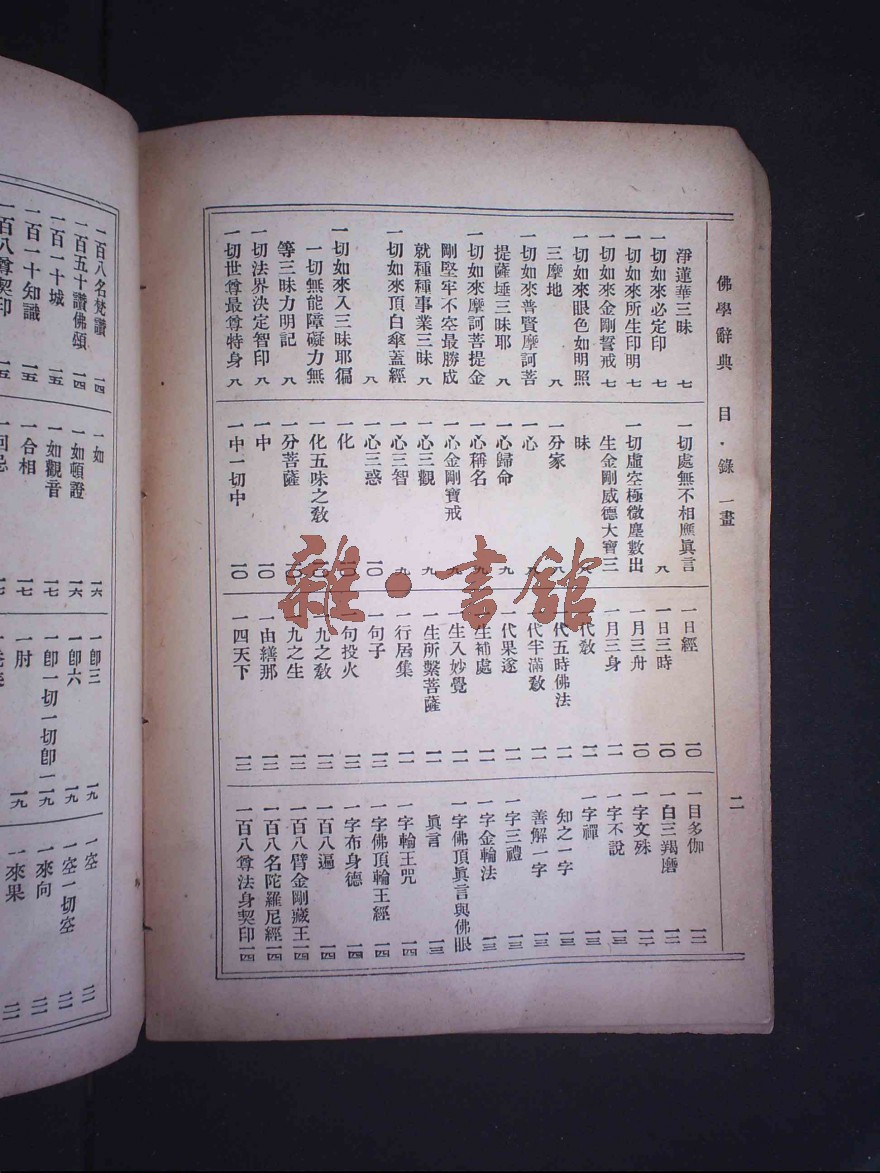 佛學辭典 目·錄 一畫 二
淨蓮華三昧 七
一切如來必定印 七
一切如來所生印明 七
一切如來金剛誓戒 七
一切如來眼色如明照
三摩地 八
一切如來普賢摩訶菩
提薩埵三昧耶 八
一切如來摩訶菩提金
剛堅牢不空最勝成
就種種事業三昧 八
一切如來頂白傘蓋經
八
一切如來入三昧耶徧
一切無能障礙力無
等三昧力明記 八
一切法界決定智印 八
一切世尊最尊特身 八
一切處無不相應眞言
八
一切虛空極微塵數出
生金剛威德大寶三
昧 八
一分家 八
一心 八
一心歸命 九
一心稱名 九
一心金剛寶戒 九
一心三觀 九
一心三智 九
一心三惑 一〇
一化 一〇
一化五味之敎 一〇
一分菩薩 一〇
一中 一〇
一中一切中 一〇
一日經 一〇
一日三時 一〇
一月三舟 一〇
一月三身 一一
一代敎 一一
一代五時佛法 一一
一代半滿敎 一一
一代果遂 一一
一生補處 一一
一生入妙覺 一一
一生所繫菩薩 一一
一行居集 一一
一句子 一二
一句投火 一二
一九之敎 一二
一九之生 一二
一由繕那 一二
一四天下 一二
一目多伽 一二
一白三羯磨 一二
一字文殊 一二
一字不說 一三
一字禪 一三
知之一字 一三
善解一字 一三
一字三禮 一三
一字金輪法 一三
一字佛頂眞言與佛眼
眞言 一三
一字輪王咒 一四
一字佛頂輪王經 一四
一字布身德 一四
一百八遍 一四
一百八臂金剛藏王 一四
一百八名陀羅尼經 一四
一百八尊法身契印 一四
一百八名梵讚 一四
一百五十讚佛頌 一四
一百一十城 一五
一百一十知識 一五
一百八尊契印 一五
一如 一六
一如頓證 一六
一如觀音 一七
一合相 一七
一卽三 一九
一卽六 一九
一卽一切一切卽一 一九
一肘 一九
一空 二一
一空一切空 二一
一來向 二一
一來果 二一
雜·書館